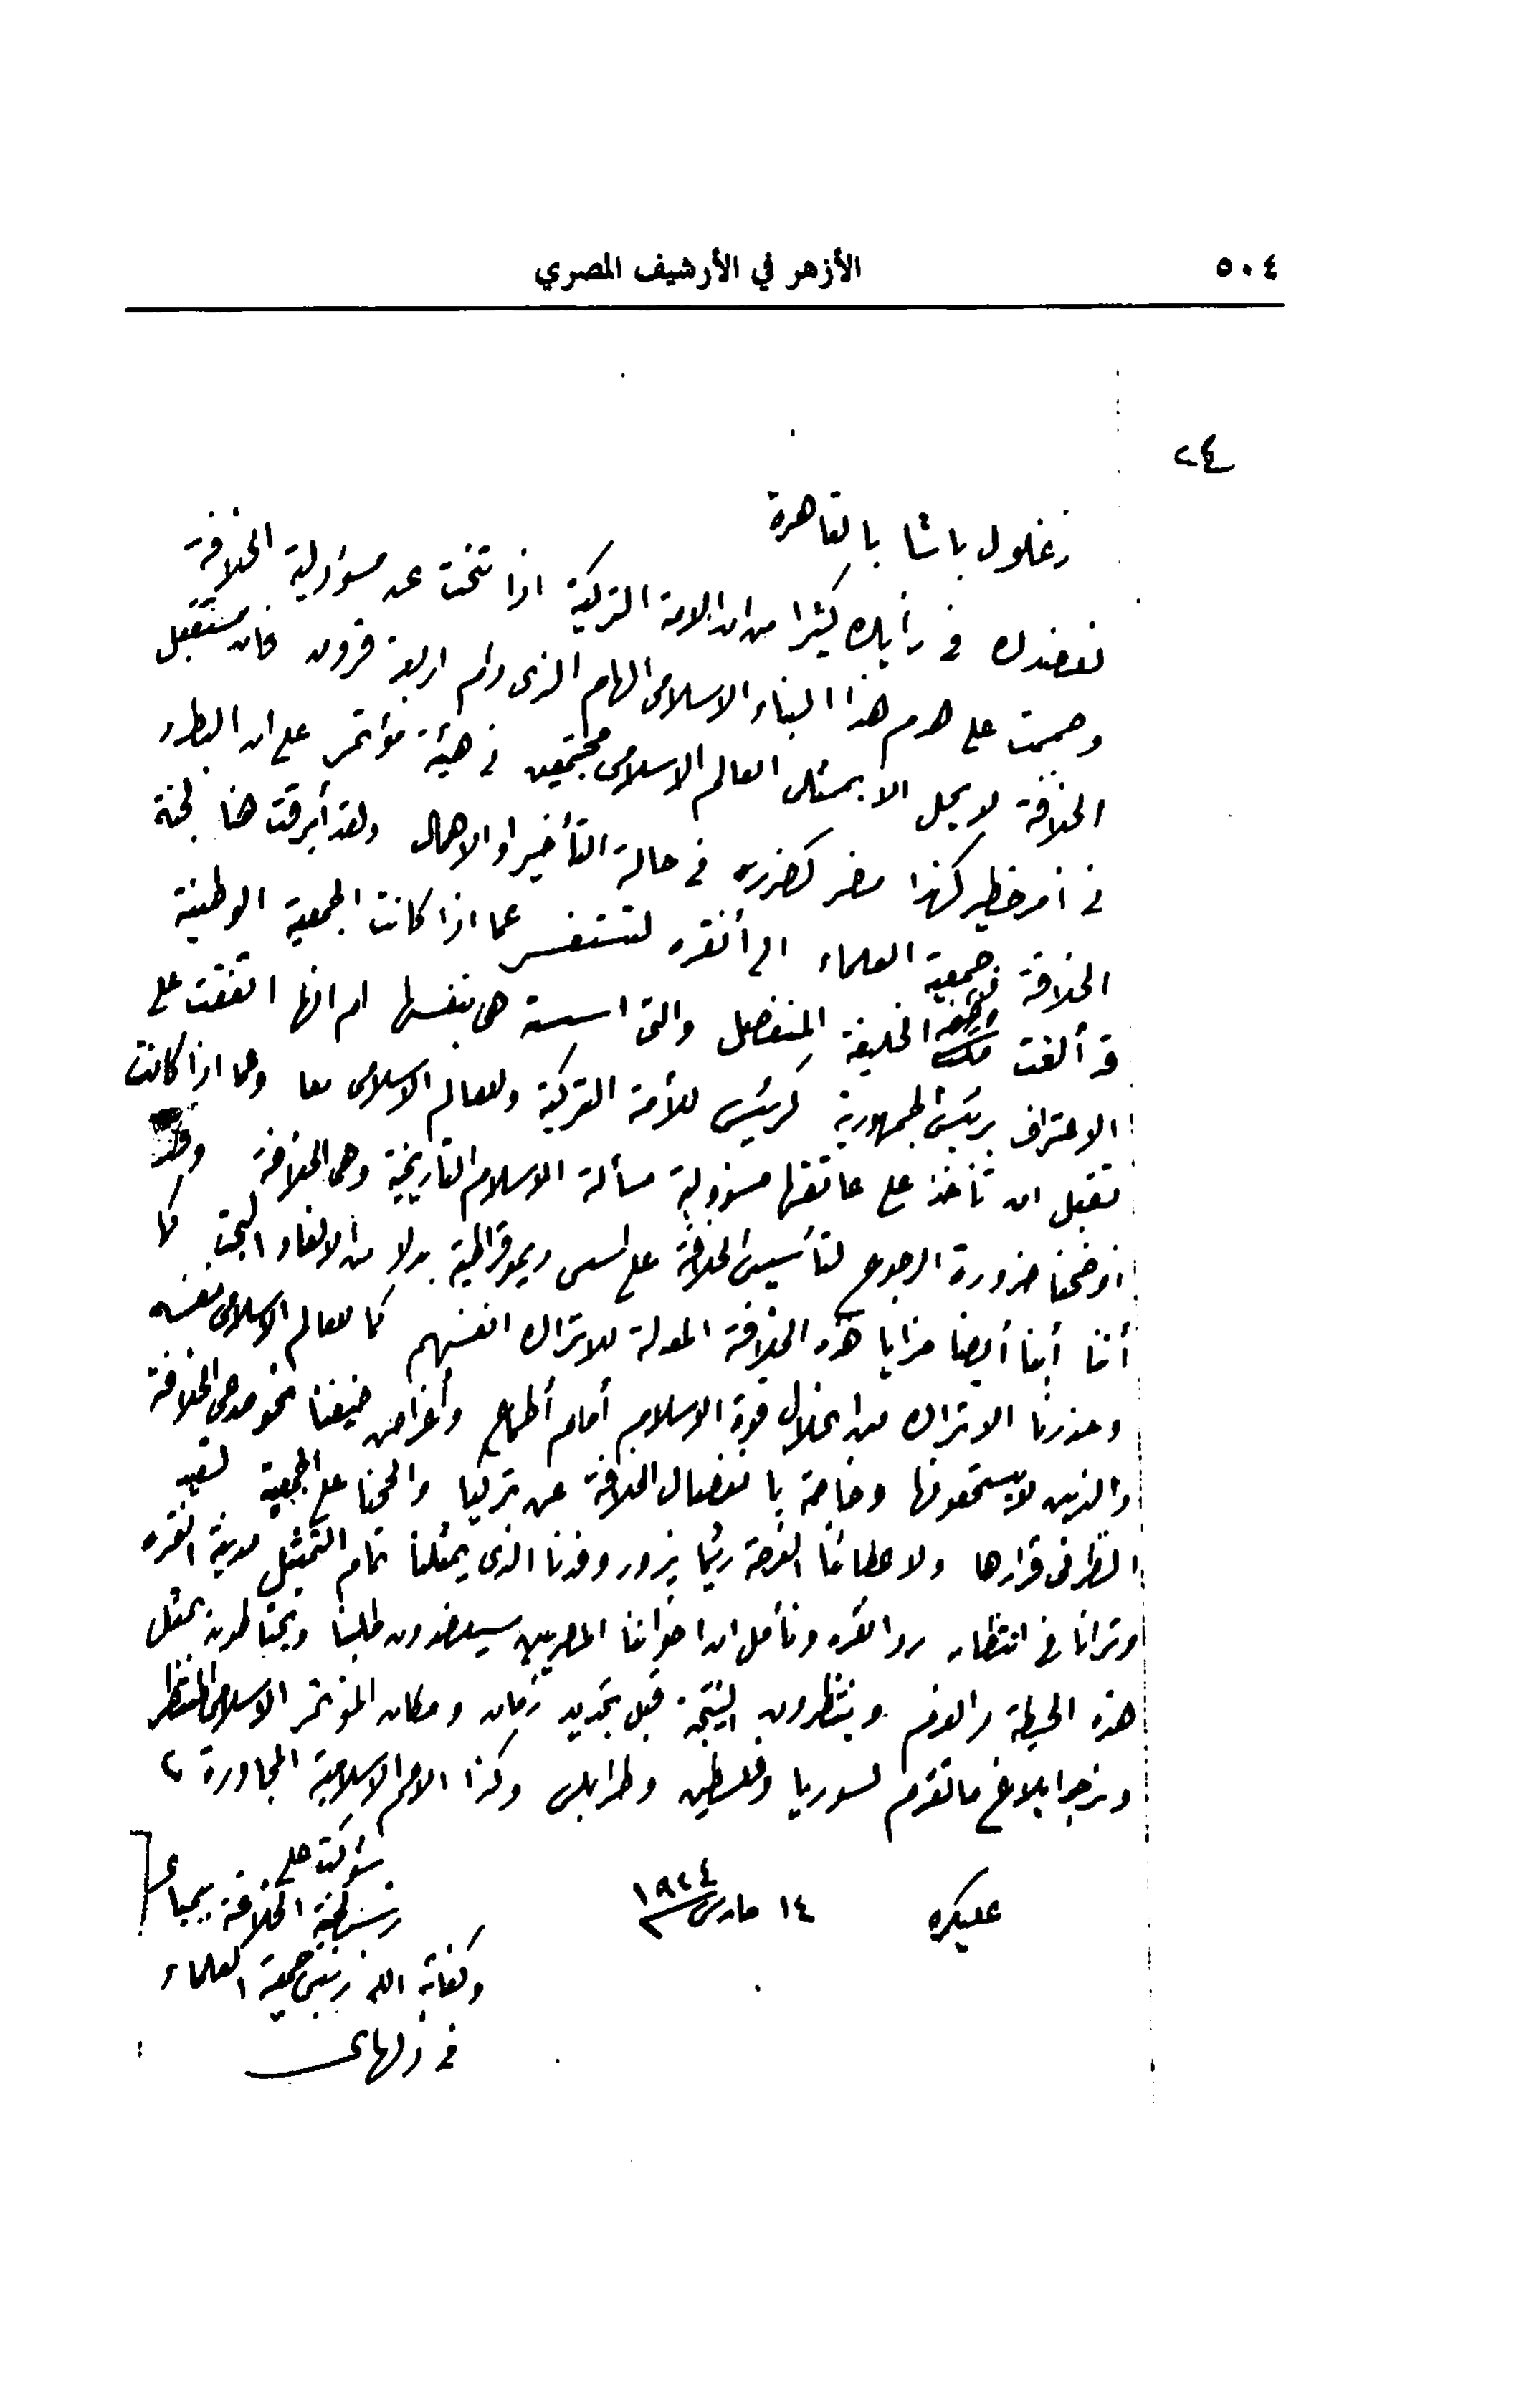 ٥٠٤
الأزهر في الأرشيف المصري
٢٤
زغلول باشا بالقاهرة
نعضدك في رأيك كثيرا من ان الامة التركية اذا تخت عن مسؤولية الخلافة
وصممت على هدم هذا البناء الاسلامى الهام الذى دام اربعة قرون فان مستقبل
الخلافة لا يحل الا بممثلى العالم الاسلامى مجتمعين في هيئة مؤتمر على ان البطء
في امر خطير كهذا مضر كضرره في حالة التأخير او الاهمال ولقد أبرقت هنا لجنة
الخلافة وجمعية العلماء الى أنقره لتستفسر عما اذا كانت الجمعية الوطنية
قد ألغت وظيفة الخليفة المنفصل والتى اسسته هى بنفسها ام انها اتفقت على
الاعتراف برئيس الجمهورية كرئيس للأمة التركية وللعالم الاسلامى معا وعما اذا كانت
تقبل ان تأخذ على عاتقها مسؤولية مسألة الاسلام التاريخية وهى الخلافة وقد
اوضحنا ضرورة الرجوع لتأسيس الخلافة على اسس ديموقراطية بدلا من الالغاء البحت كما
أننا أبنا أيضا مزايا هذه الخلافة المعدلة للاتراك انفسهم كما للعالم الاسلامى نفسه
وحذرنا الاتراك من انحلال قوة الاسلام أمام أطماع وأغراض ضيفنا نحو مدعى الخلافة
والذين لا يستحقونها وخاصة بانفصال الخلافة عن تركيا والححنا على الجمعية لتعيد
النظر فى قرارها ولاعطائنا الفرصة ريثما يزور وفدنا الذى يمثلنا تمام التمثيل مدينة انقره
وترانا في انتظار رد انقره ونأمل ان اخواننا المصريين سيعضدون طلبنا ويحتاطون بمثل
هذه الحيطة والعزم وينتظرون النتيجة قبل تحديد زمان ومكان المؤتمر الاسلامى المنتظر
ونرجو ابلاغ ما تقدم لسوريا وفلسطين وطرابلس وكذا الامم الاسلامية المجاورة
عليكره ١٤ مارس ١٩٢٤
شوكت على
رئيس لجنة الخلافة ببمباى
وكفاية الله رئيس جمعية العلماء
في دلهاى